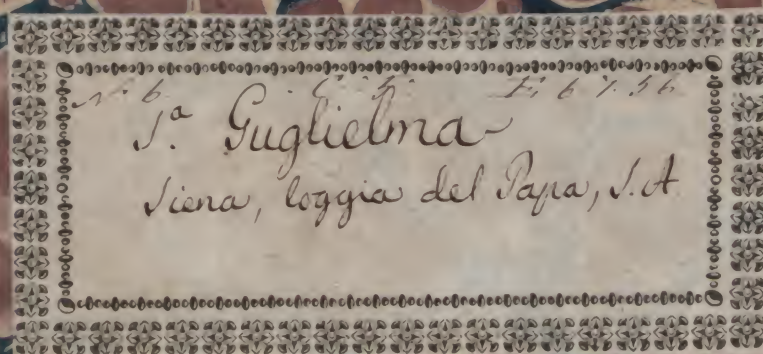 N. 6. C. 5. F. 6 7.56
S.ª Guglielma
Siena, loggia del Papa, S. A.